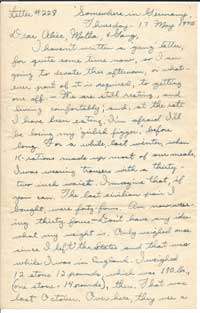 Letter #228 "Somewhere in Germany,
Thursday - 17 May 1945
Dear Alice, Martha, & Gang,
I haven't written a "gang" letter,
for quite some time now, so I am
going to devote this afternoon, or what-
ever part of it is required, to getting
one off. We are still resting, and
living comfortably; and, at the rate
I have been eating, I'm afraid I'll
be losing my girlish figger, before
long. For a while, last winter, when
K-rations made up most of our meals,
I was wearing trousers with a thirty-
two inch waist. Imagine that, if
you can. The last civilian pair I
bought were forty-four. Am now wear-
ing thirty fours. Don't have any idea
what my weight is. Only weighed once
since I left the States and that was
while I was in England. I weighed
12 stone 12 pounds, which was 180 lb,
(one stone = 14 pounds), then. That was
last October. Over here, they use a